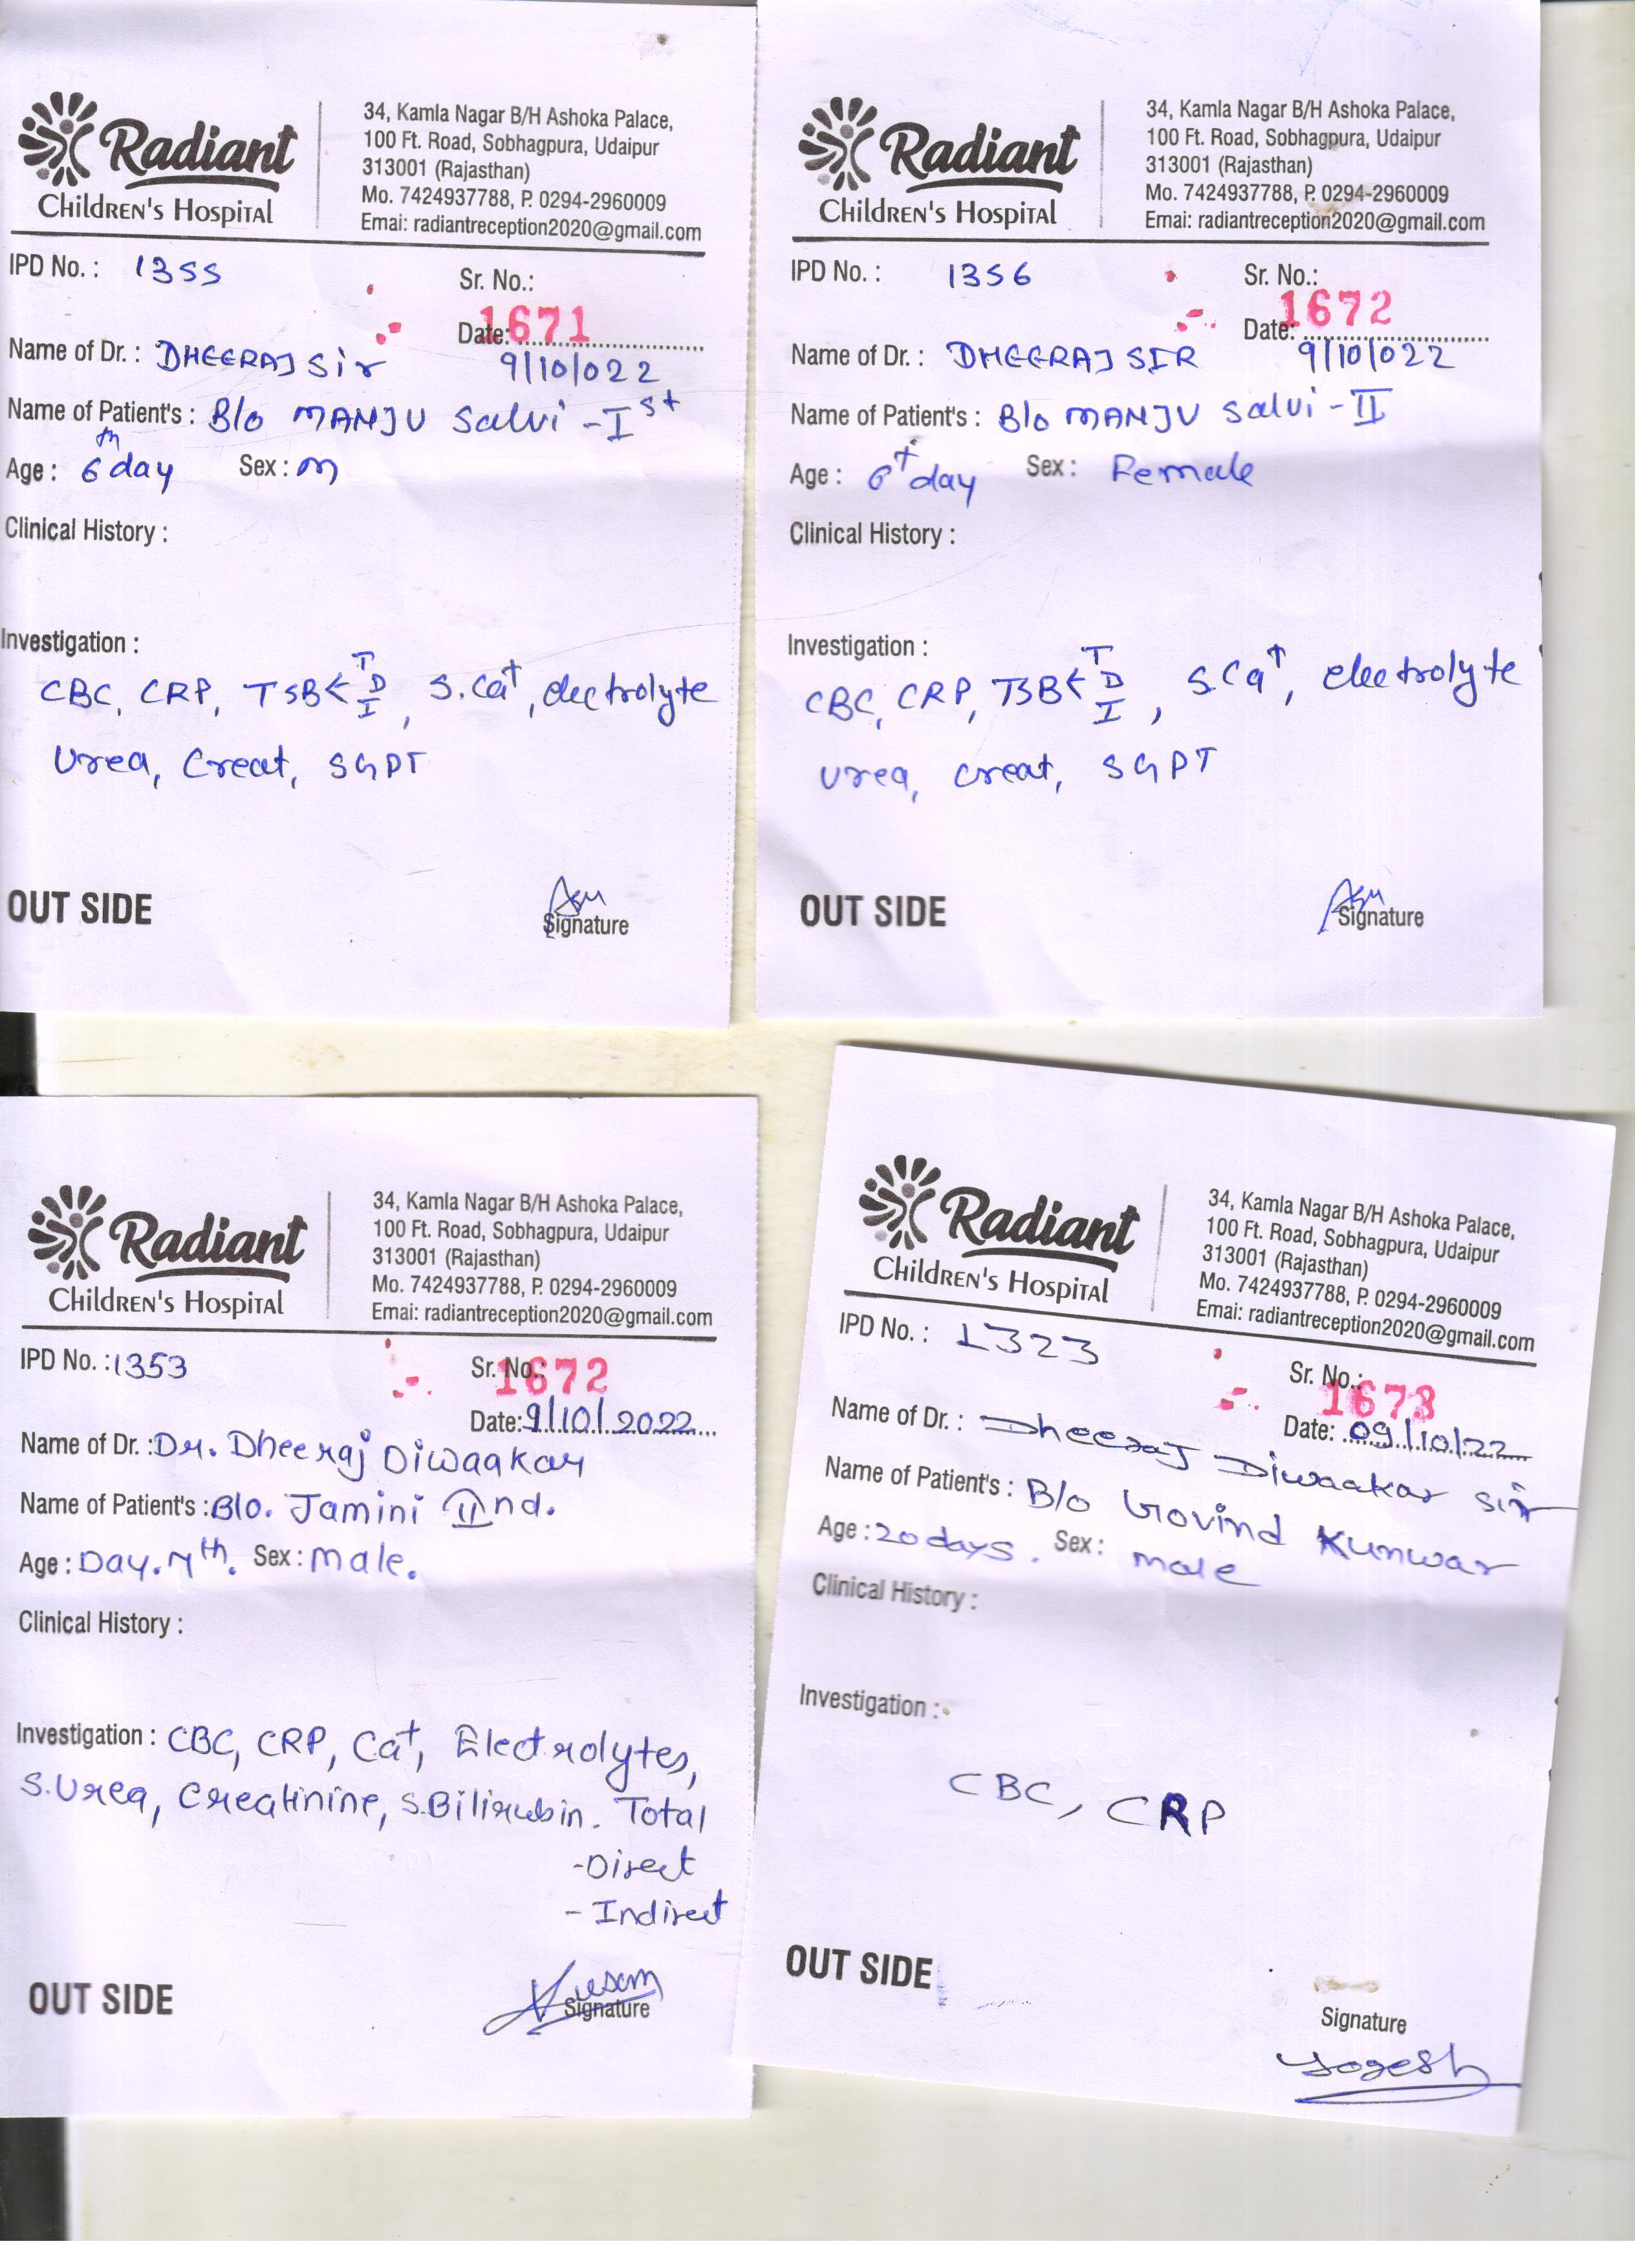 Radiant
Children's Hospital
34, Kamla Nagar B/H Ashoka Palace,
100 Ft. Road, Sobhagpura, Udaipur
313001 (Rajasthan)
Mo. 7424937788, P. 0294-2960009
Emai: radiantreception2020@gmail.com
IPD No. : 1355
Sr. No.:
1671
Date:
9/10/022
Name of Dr. : DHEERAJ Sir
Name of Patient's : B/o MANJU Salvi - I st
Age : 6th day Sex : m
Clinical History :
Investigation :
CBC, CRP, TSB< T D I, S.Ca+, electrolyte
Urea, Creat, SGPT
OUT SIDE
Signature
Radiant
Children's Hospital
34, Kamla Nagar B/H Ashoka Palace,
100 Ft. Road, Sobhagpura, Udaipur
313001 (Rajasthan)
Mo. 7424937788, P. 0294-2960009
Emai: radiantreception2020@gmail.com
IPD No. : 1356
Sr. No.:
1672
Date:
9/10/022
Name of Dr. : DHEERAJ SIR
Name of Patient's : B/o MANJU Salvi - II
Age : 6+ day Sex : Female
Clinical History :
Investigation :
CBC, CRP, TSB< T D I, S.Ca+, electrolyte
Urea, creat, SGPT
OUT SIDE
Signature
Radiant
Children's Hospital
34, Kamla Nagar B/H Ashoka Palace,
100 Ft. Road, Sobhagpura, Udaipur
313001 (Rajasthan)
Mo. 7424937788, P. 0294-2960009
Emai: radiantreception2020@gmail.com
IPD No. : 1353
Sr. No.: 1672
Date: 9/10/2022
Name of Dr. : Dr. Dheeraj Diwaakar
Name of Patient's : B/o. Jamini II nd.
Age : Day. 7th. Sex : male.
Clinical History :
Investigation : CBC, CRP, Ca+, Electrolytes,
S.Urea, Creatinine, S.Bilirubin. Total
- Direct
- Indirect
OUT SIDE
Kusum
Signature
Radiant
Children's Hospital
34, Kamla Nagar B/H Ashoka Palace,
100 Ft. Road, Sobhagpura, Udaipur
313001 (Rajasthan)
Mo. 7424937788, P. 0294-2960009
Emai: radiantreception2020@gmail.com
IPD No. : 1323
Sr. No.: 1673
Date: 09/10/22
Name of Dr. : Dheeraj Diwaakar sir
Name of Patient's : B/o Govind Kunwar
Age : 20 days. Sex : male
Clinical History :
Investigation :
CBC, CRP
OUT SIDE
Signature
Yogesh